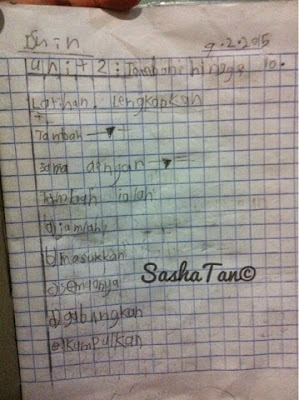 Isnin 9.2.2015
Unit 2: Tambah hingga 10.
Latihan. Lengkapkan
+
Tambah → +
sama dengan → =
Istilah
a) jumlah
b) masukkan
c) semuanya
d) gabungkan
e) kumpulkan
SashaTan©